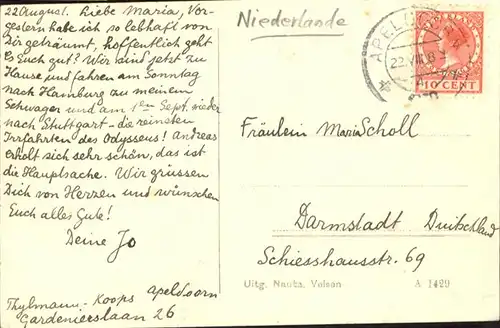 22 August. Liebe Maria, Vor-
gestern habe ich so lebhaft von
Dir geträumt, hoffentlich geht
es Euch gut? Wir sind jetzt zu
Hause und fahren am Sonntag
nach Hamburg zu meinem
Schwager und am 1en Sept. wieder
nach Stuttgart - die reinsten
Irrfahrten des Odysseus! Andreas
erholt sich sehr schön, das ist
die Hauptsache. Wir grüssen
Dich von Herzen und wünschen
Euch alles Gute!
Deine Jo
Thylmann-Koops Apeldoorn
Gardenierslaan 26
Niederlande
APEL
22 VIII
NEDERLAND
10 CENT
Fräulein Maria Scholl
Darmstadt Duitschland
Schiesshausstr. 69
Uitg. Nauta. Velsen A 1429